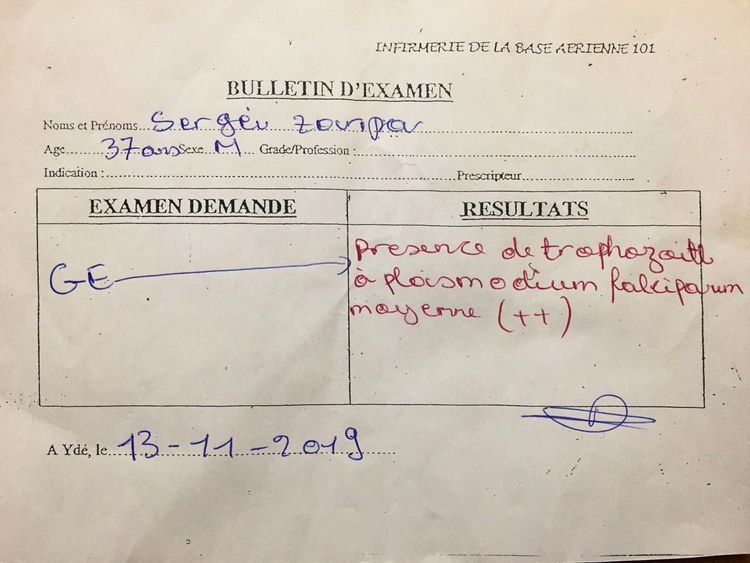 INFIRMERIE DE LA BASE AERIENNE 101
BULLETIN D'EXAMEN
Noms et Prénoms...Sergéu
Age......37ans Sexe...M... Grade/Profession :
Indication : Prescripteur
EXAMEN DEMANDE RESULTATS
Presence de trophozoïtt
GE à plasmodium falciparum
moyenne (++)
A Ydé, le...13-11-2019